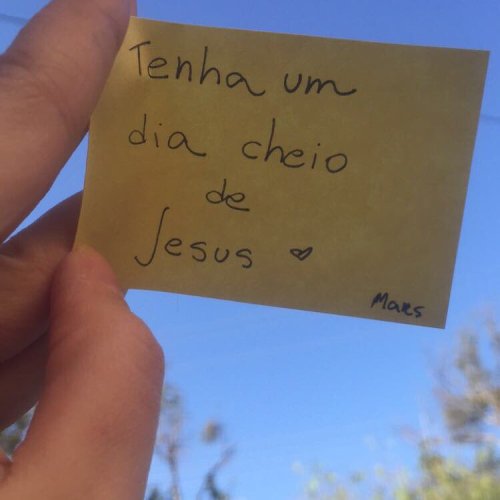 Tenha um
dia cheio
de
Jesus ♡
Maes